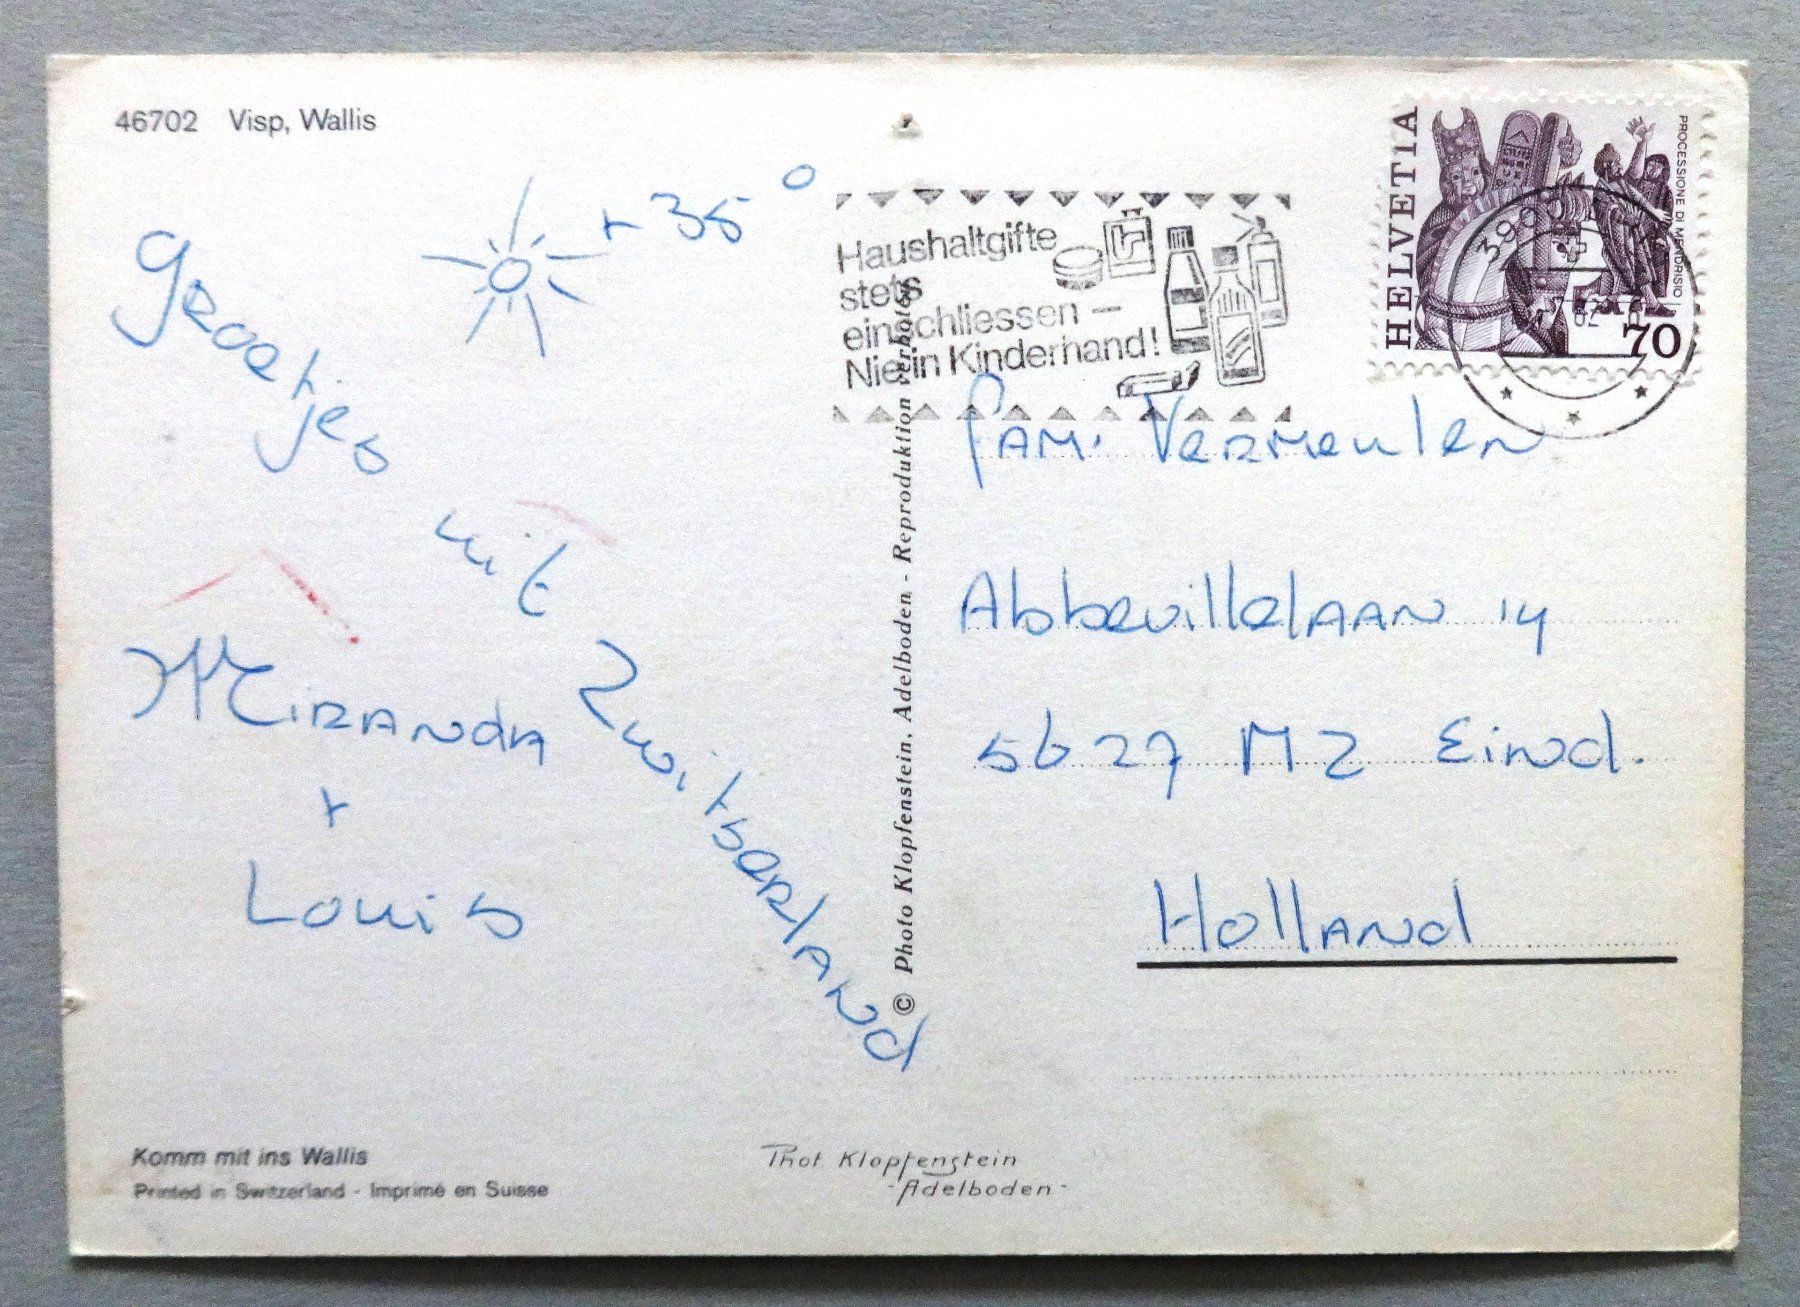 46702 Visp, Wallis
+ 35°
Groetjes uit Zwitserland
Miranda
+
Louis
Komm mit ins Wallis
Printed in Switzerland - Imprimé en Suisse
© Photo Klopfenstein, Adelboden - Reproduktion verboten
Phot Klopfenstein
- Adelboden -
Haushaltgifte
stets
einschliessen –
Nie in Kinderhand!
HELVETIA
PROCESSIONE DI MENDRISIO
70
Fam. Vermeulen
Abbevillelaan 14
5627 MZ Eind.
Holland